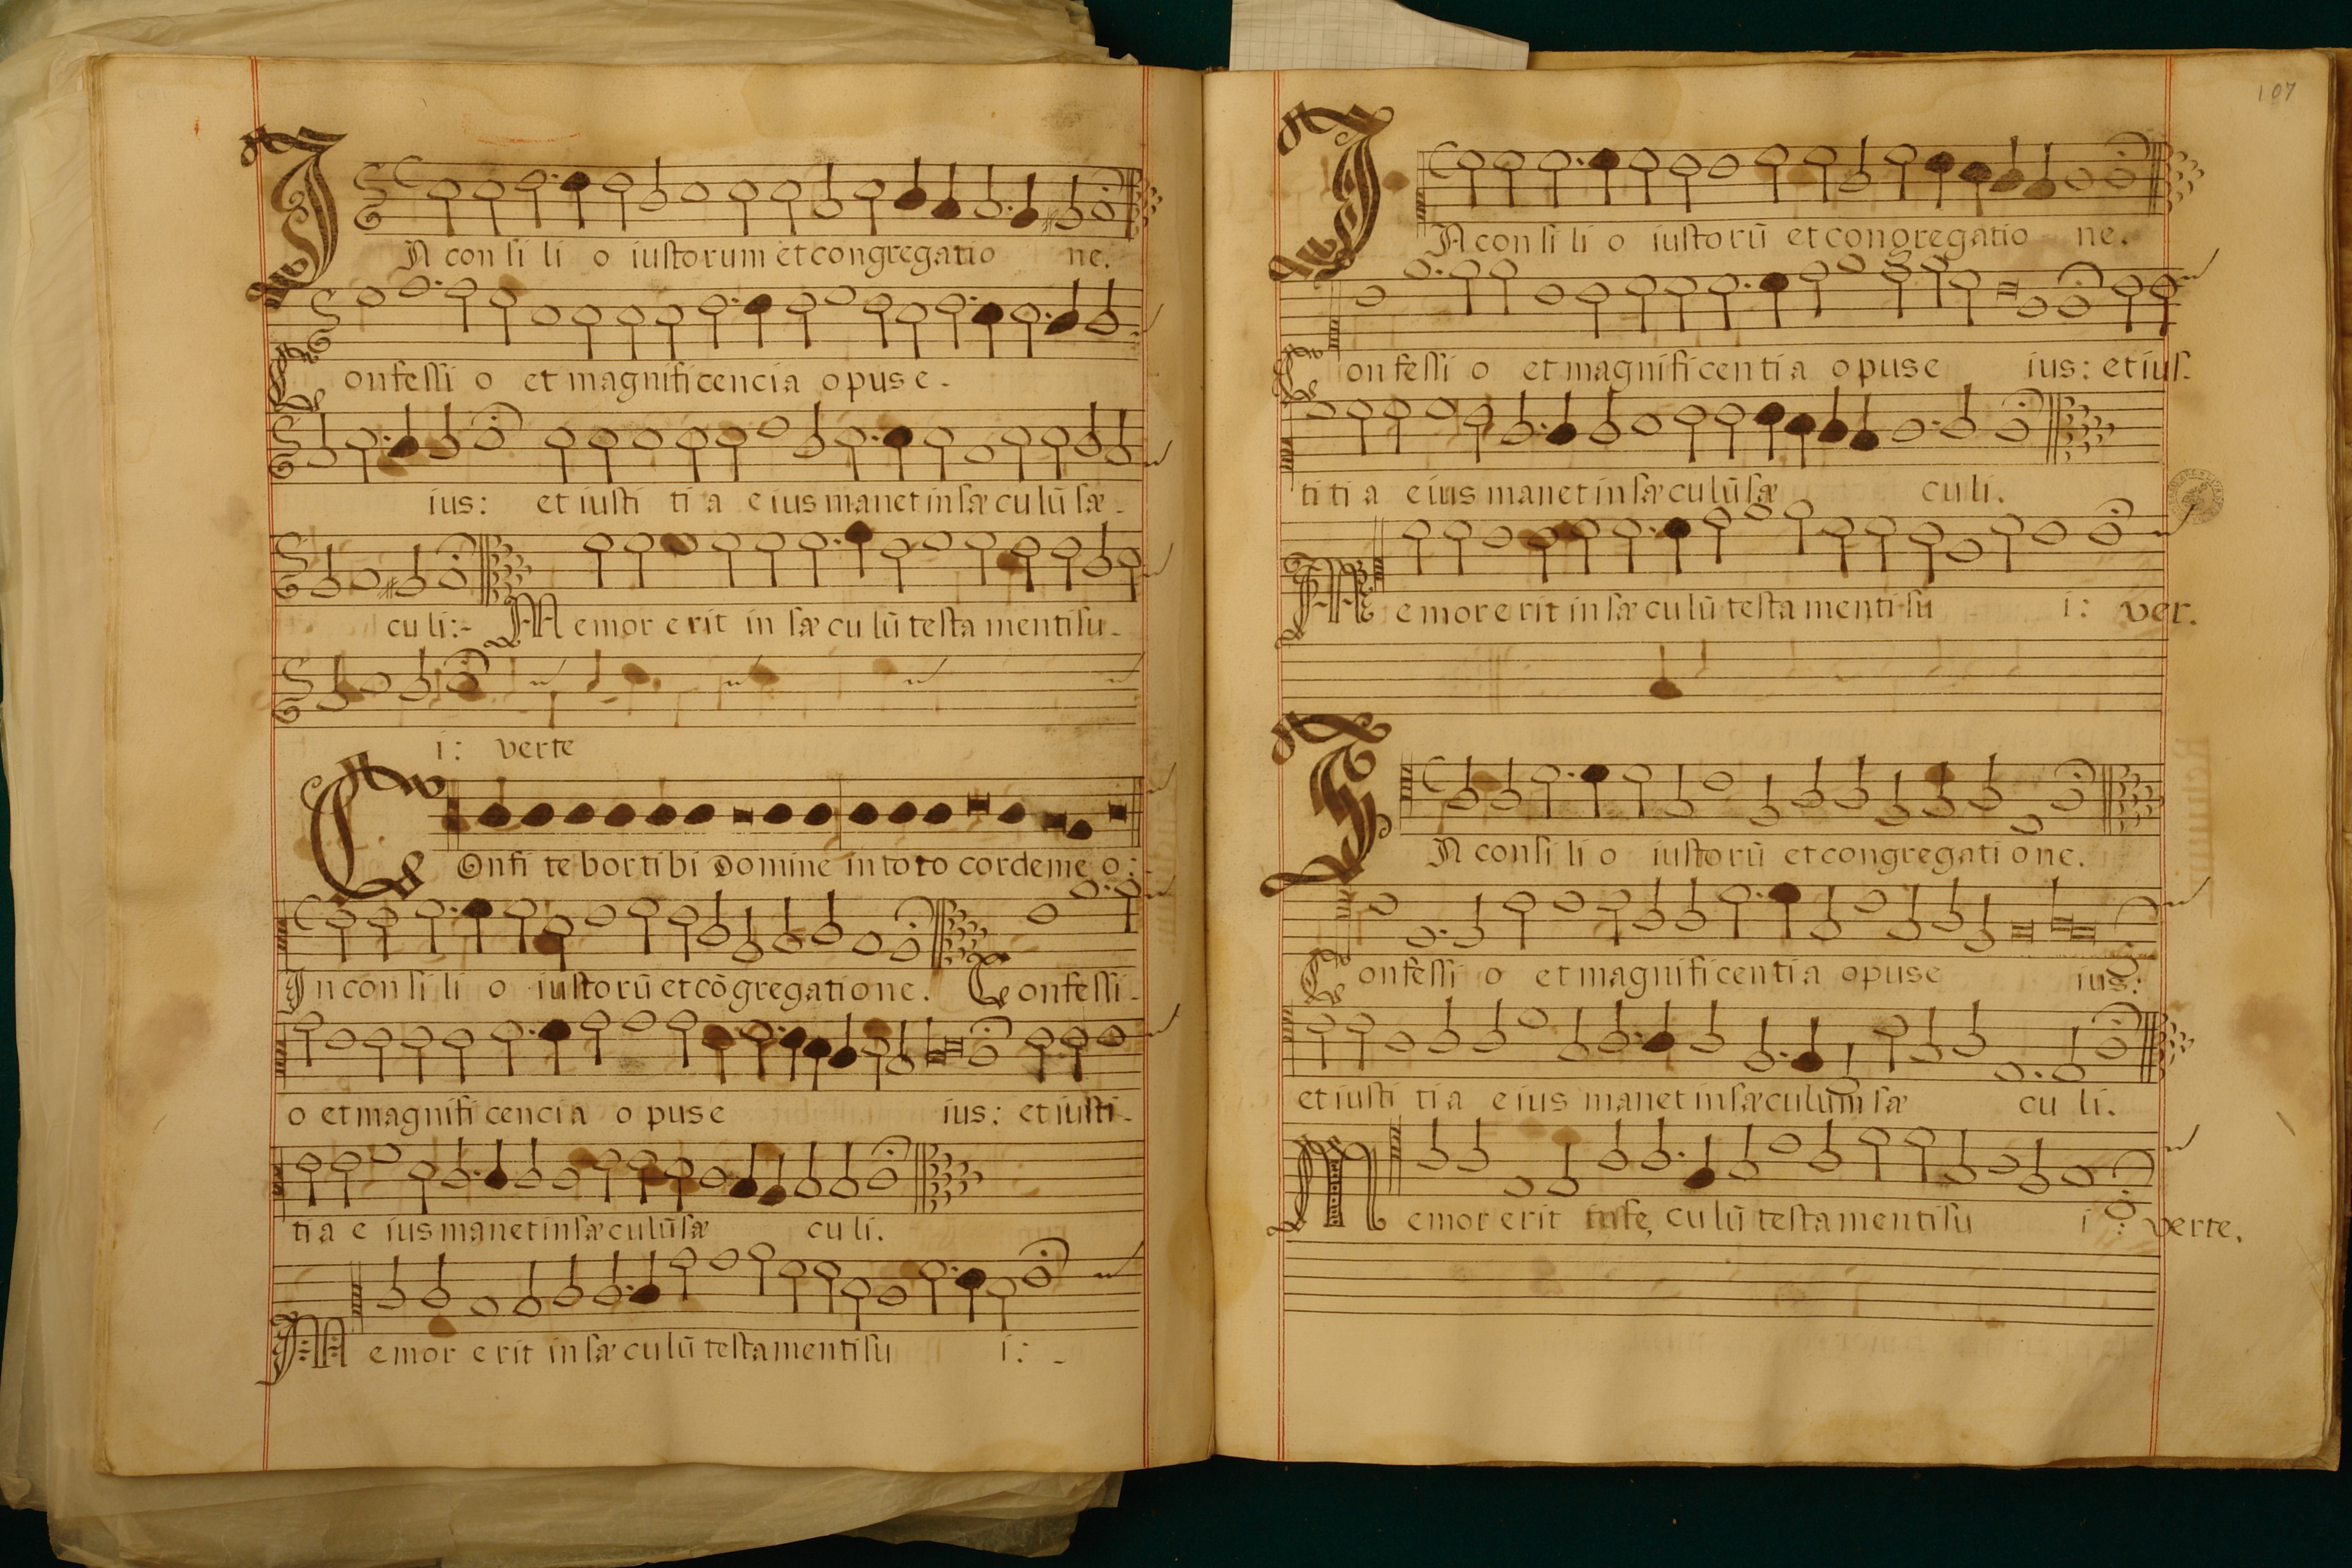 In con si li o iustorum et congregatio ne.
Confessi o et magnificencia opus e-
ius: et iusti ti a eius manet in sæculū sæ-
culi:- Memor erit in sæculū testamenti su-
i: verte
Confitebor tibi Domine in toto corde meo:
In con si li o iustorū et cōgregatione. Confessi-
o et magnificencia opus e ius: et iusti-
tia eius manet in sæculū sæ culi.
Memor erit in sæculū testamenti su i: -
107
In con si li o iustorū et congregatio ne.
Confessi o et magnificentia opus e ius: et ius-
titia eius manet in sæculū sæ culi.
Memor erit in sæculū testamenti su i: ver-
In consi li o iustorū et congregatione.
Confessi o et magnificentia opus e ius:
et iusti tia eius manet in sæculum sæ culi.
Memor erit in se, culū testamenti su i: verte.